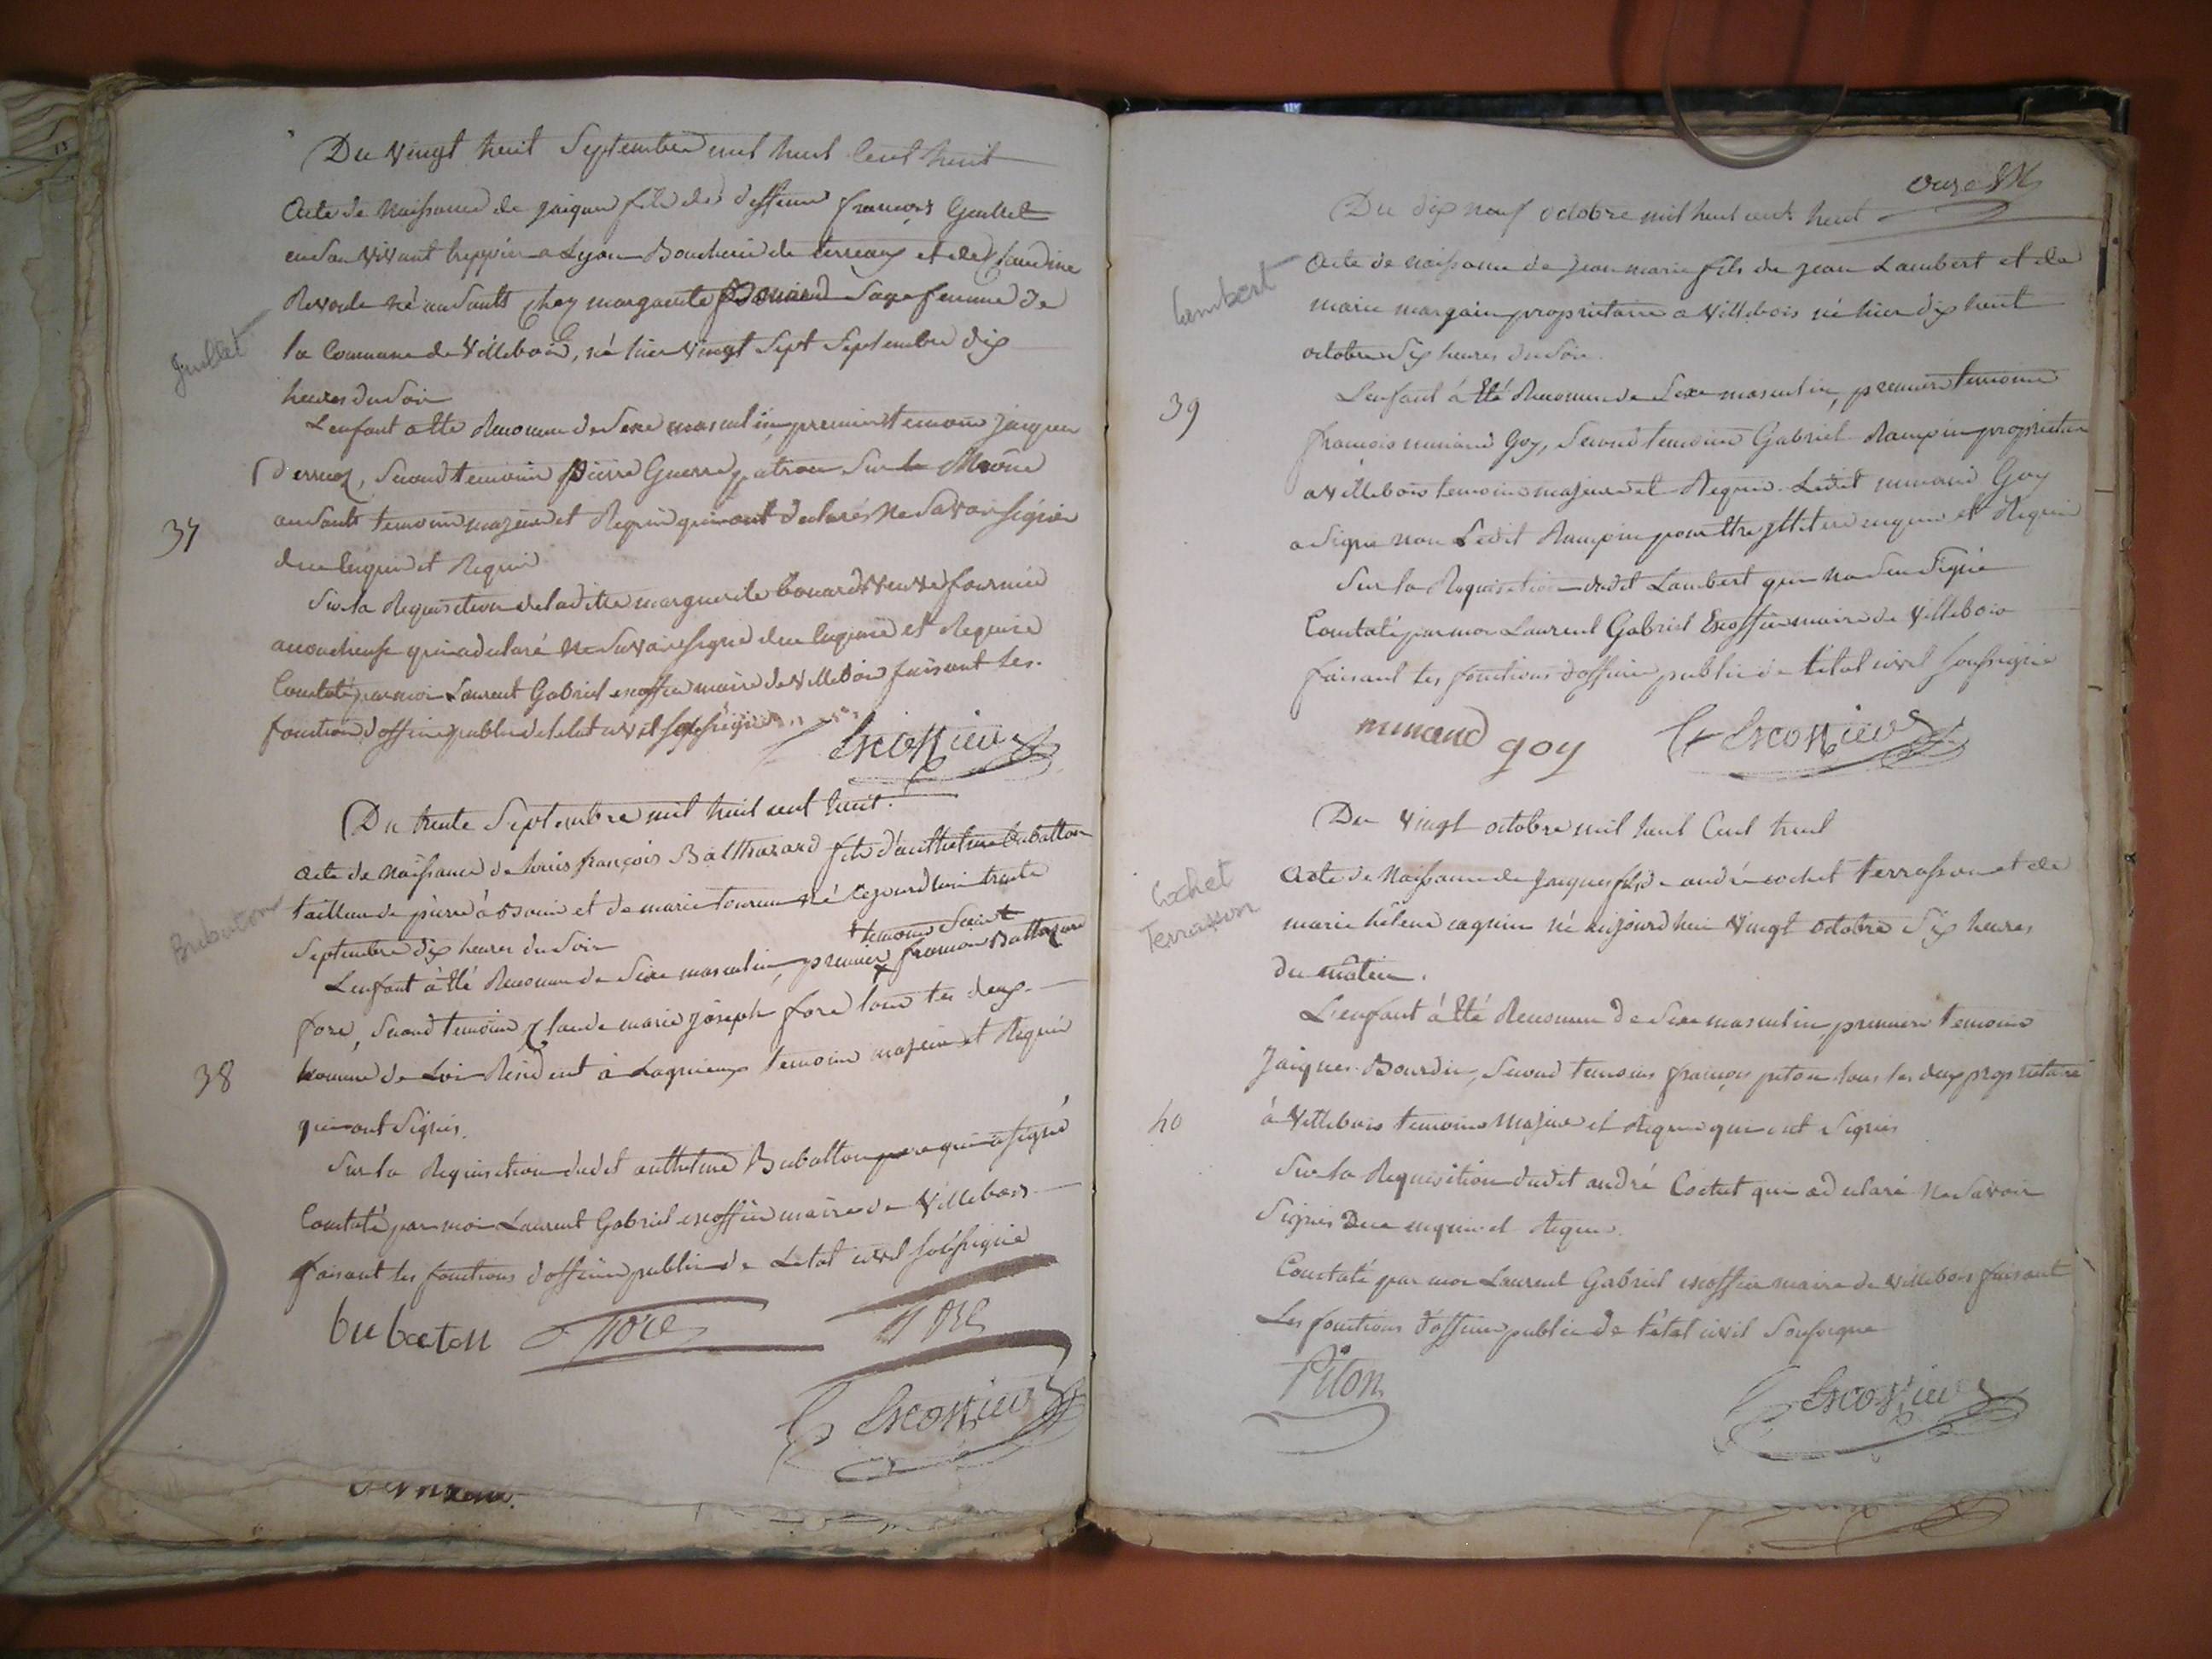 Du vingt huit Septembre mil huit Cent huit
Acte de Naissance de jaique fils de deffeun françois Guillet
en Son vivant trippier a Lyon Boucherie de terreaux et de Claudine
Revode né au Sault Chez marguerite Sage femme de
la Commune de Villebois, né hier vingt Sept Septembre dix
heures du Soir
Juillet
L'enfant a été Reconnu de Sexe masculin, premier temoin jaique
Perruoz, Second temoin pierre Guerre patron Sur le Rhône
au Sault temoins majeurs et Requis qui ont déclarés Ne Savoir signer
37
de ce enquis et Requis
Sur la Requisition de la ditte marguerite bouard veuve fournier
accoucheuse qui a declaré Ne Savoir signer de ce enquise et Requise
Constaté par moi Laurent Gabriel escoffier maire de Villebois faisant les
fonctions d'officier public de l'etat civil soussigné
Escoffier
Du trente Septembre mil huit cent huit.
acte de Naissance de louis françois Balthazard fils d'anthelme Bubatton
tailleur de pierre à Bouis et de marie né Cejourdhui trente
Septembre dix heures du Soir
Bubaton
temoin Saint
L'enfant à été Reconnu de Sexe masculin, premier françois Baltazard
fore, Second temoin Claude marie joseph fore tous les deux
homme de Loi Resident à Lagnieux temoins majeurs et Requis
38
qui ont Signés.
Sur la Requisition dudit anthelme Bubatton pere qui a signé
Constaté par moi Laurent Gabriel escoffier maire de Villebois
faisant les fonctions d'officier public de L'etat civil soussigné
bubaton fore fore
Escoffier
onze
Du dix neuf octobre mil huit cent huit
Acte de naissance de jean marie fils de jean Lambert et de
Lambert
marie margain proprietaire a Villebois né hier dix huit
octobre Six heures du Soir
L'enfant à été Reconnu de Sexe masculin, premier temoin
39
françois minand Goy, Second temoin Gabriel Rampin proprietaire
a Villebois temoins majeurs et Requis. Ledit minand Goy
a Signé non Ledit Rampin pour être illiteré enquis et Requis
Sur la Requisition dudit Lambert qui na Su Signé
Constaté par moi Laurent Gabriel Escoffier maire de Villebois
faisant les fonctions d'officier public de l'etat civil soussigné
minand goy Escoffier
Du vingt octobre mil huit Cent huit
Acte de Naissance de Jacques fils de andré cochet terrasson et de
Cochet
Terrasson
marie hélène caquin né aujourdhui vingt octobre Six heures
du matin.
L'enfant à été Reconnu de Sexe masculin, premier temoin
Jaiques Bourdin, Second temoin françois piton tous les deux proprietaire
40
à Villebois temoins Majeurs et Requis qui ont Signés
Sur la Requisition dudit andré Cochet qui a declaré Ne Savoir
Signer De ce enquis et Requis.
Constaté par moi Laurent Gabriel escoffier maire de Villebois faisant
Les fonctions d'officier public de l'état civil Soussigné
Piton Escoffier